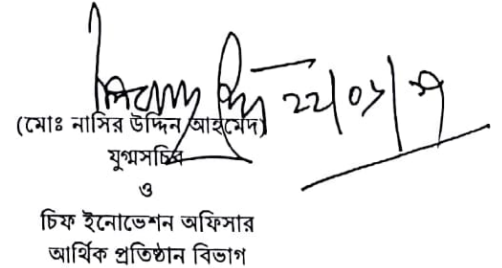 (মোঃ নাসির উদ্দিন আহমেদ)
যুগ্মসচিব
ও
চিফ ইনোভেশন অফিসার
আর্থিক প্রতিষ্ঠান বিভাগ